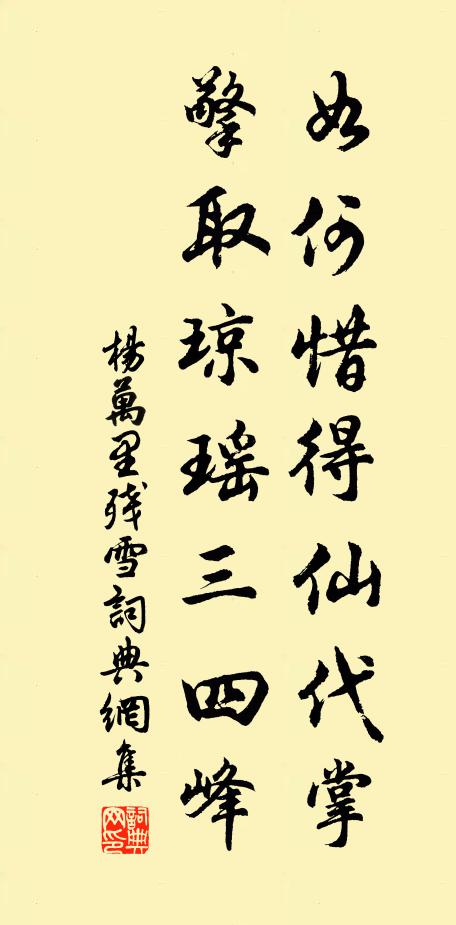 如何惜得仙代掌
擎取琼瑶三四峰
楊萬里殘雪詞典網集
詞典網印